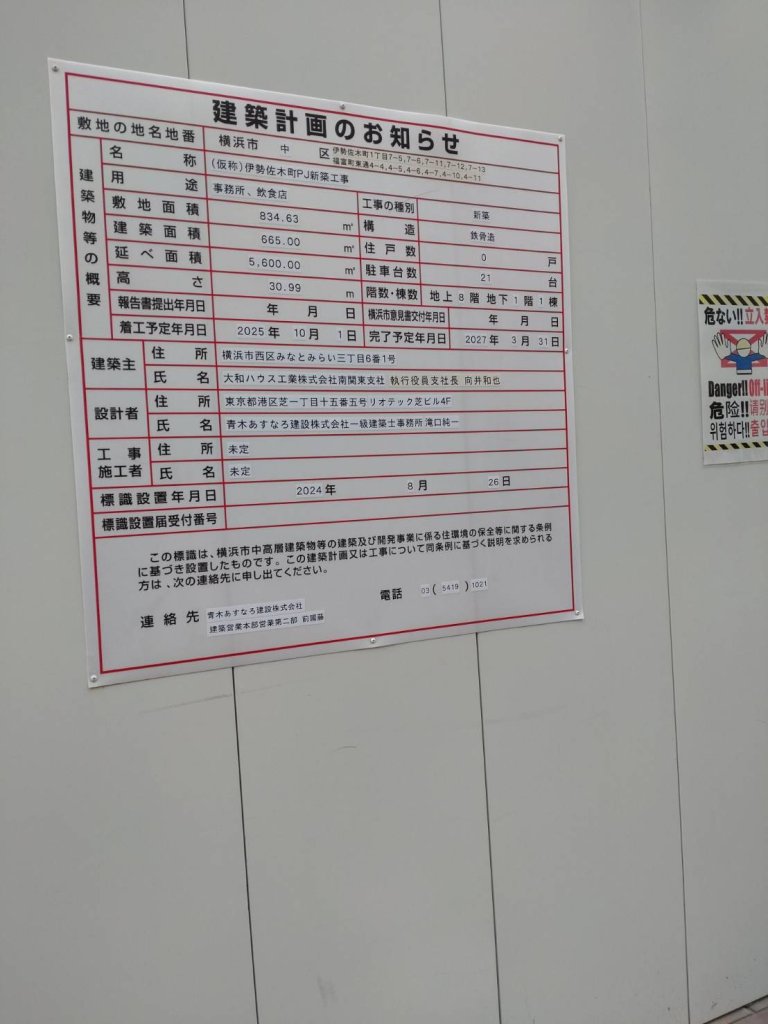 建築計画のお知らせ
敷地の地名地番 横浜市 中 区 伊勢佐木町1丁目7-5,7-6,7-11,7-12,7-13
福富町東通4-4,4-5,4-6,4-7,4-10,4-11
建築物等の概要
名称 (仮称)伊勢佐木町PJ新築工事
用途 事務所、飲食店 工事の種別 新築
敷地面積 834.63 ㎡ 構造 鉄骨造
建築面積 665.00 ㎡ 住戸数 0 戸
延べ面積 5,600.00 ㎡ 駐車台数 21 台
高さ 30.99 m 階数・棟数 地上 8 階 地下 1 階 1 棟
報告書提出年月日 年 月 日 横浜市意見書交付年月日 年 月 日
着工予定年月日 2025年 10月 1日 完了予定年月日 2027年 3月 31日
建築主 住所 横浜市西区みなとみらい三丁目6番1号
氏名 大和ハウス工業株式会社南関東支社 執行役員支社長 向井和也
設計者 住所 東京都港区芝一丁目十五番五号リオテック芝ビル4F
氏名 青木あすなろ建設株式会社一級建築士事務所 滝口純一
工事施工者 住所 未定
氏名 未定
標識設置年月日 2024年 8月 26日
標識設置届受付番号
この標識は、横浜市中高層建築物等の建築及び開発事業に係る住環境の保全等に関する条例
に基づき設置したものです。この建築計画又は工事について同条例に基づく説明を求められる
方は、次の連絡先に申し出てください。
連絡先 青木あすなろ建設株式会社 電話 03(5419)1021
建築営業本部営業第二部 前園藤
危ない!!立入
Danger!! Off-l
危险!!请别
위험하다!!출입